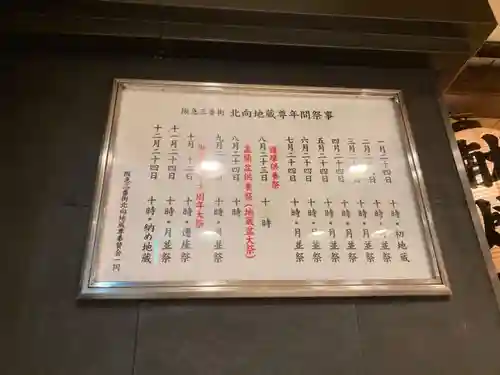 阪急三番街 北向地蔵尊年間祭事
一月二十四日 十時・初地蔵
二月二十四日 十時・月並祭
三月二十四日 十時・月並祭
四月二十四日 十時・月並祭
五月二十四日 十時・月並祭
六月二十四日 十時・月並祭
七月二十四日 十時・月並祭
護摩供養祭
八月二十三日 十時
盂蘭盆供養祭(地蔵盆大祭)
八月二十四日 十時
九月二十四日 十時・月並祭
周年大祭
十月 十二日 十時・遷座祭
十一月二十四日 十時・月並祭
十二月二十四日 十時・納め地蔵
阪急三番街北向地蔵尊奉賛会一同
献